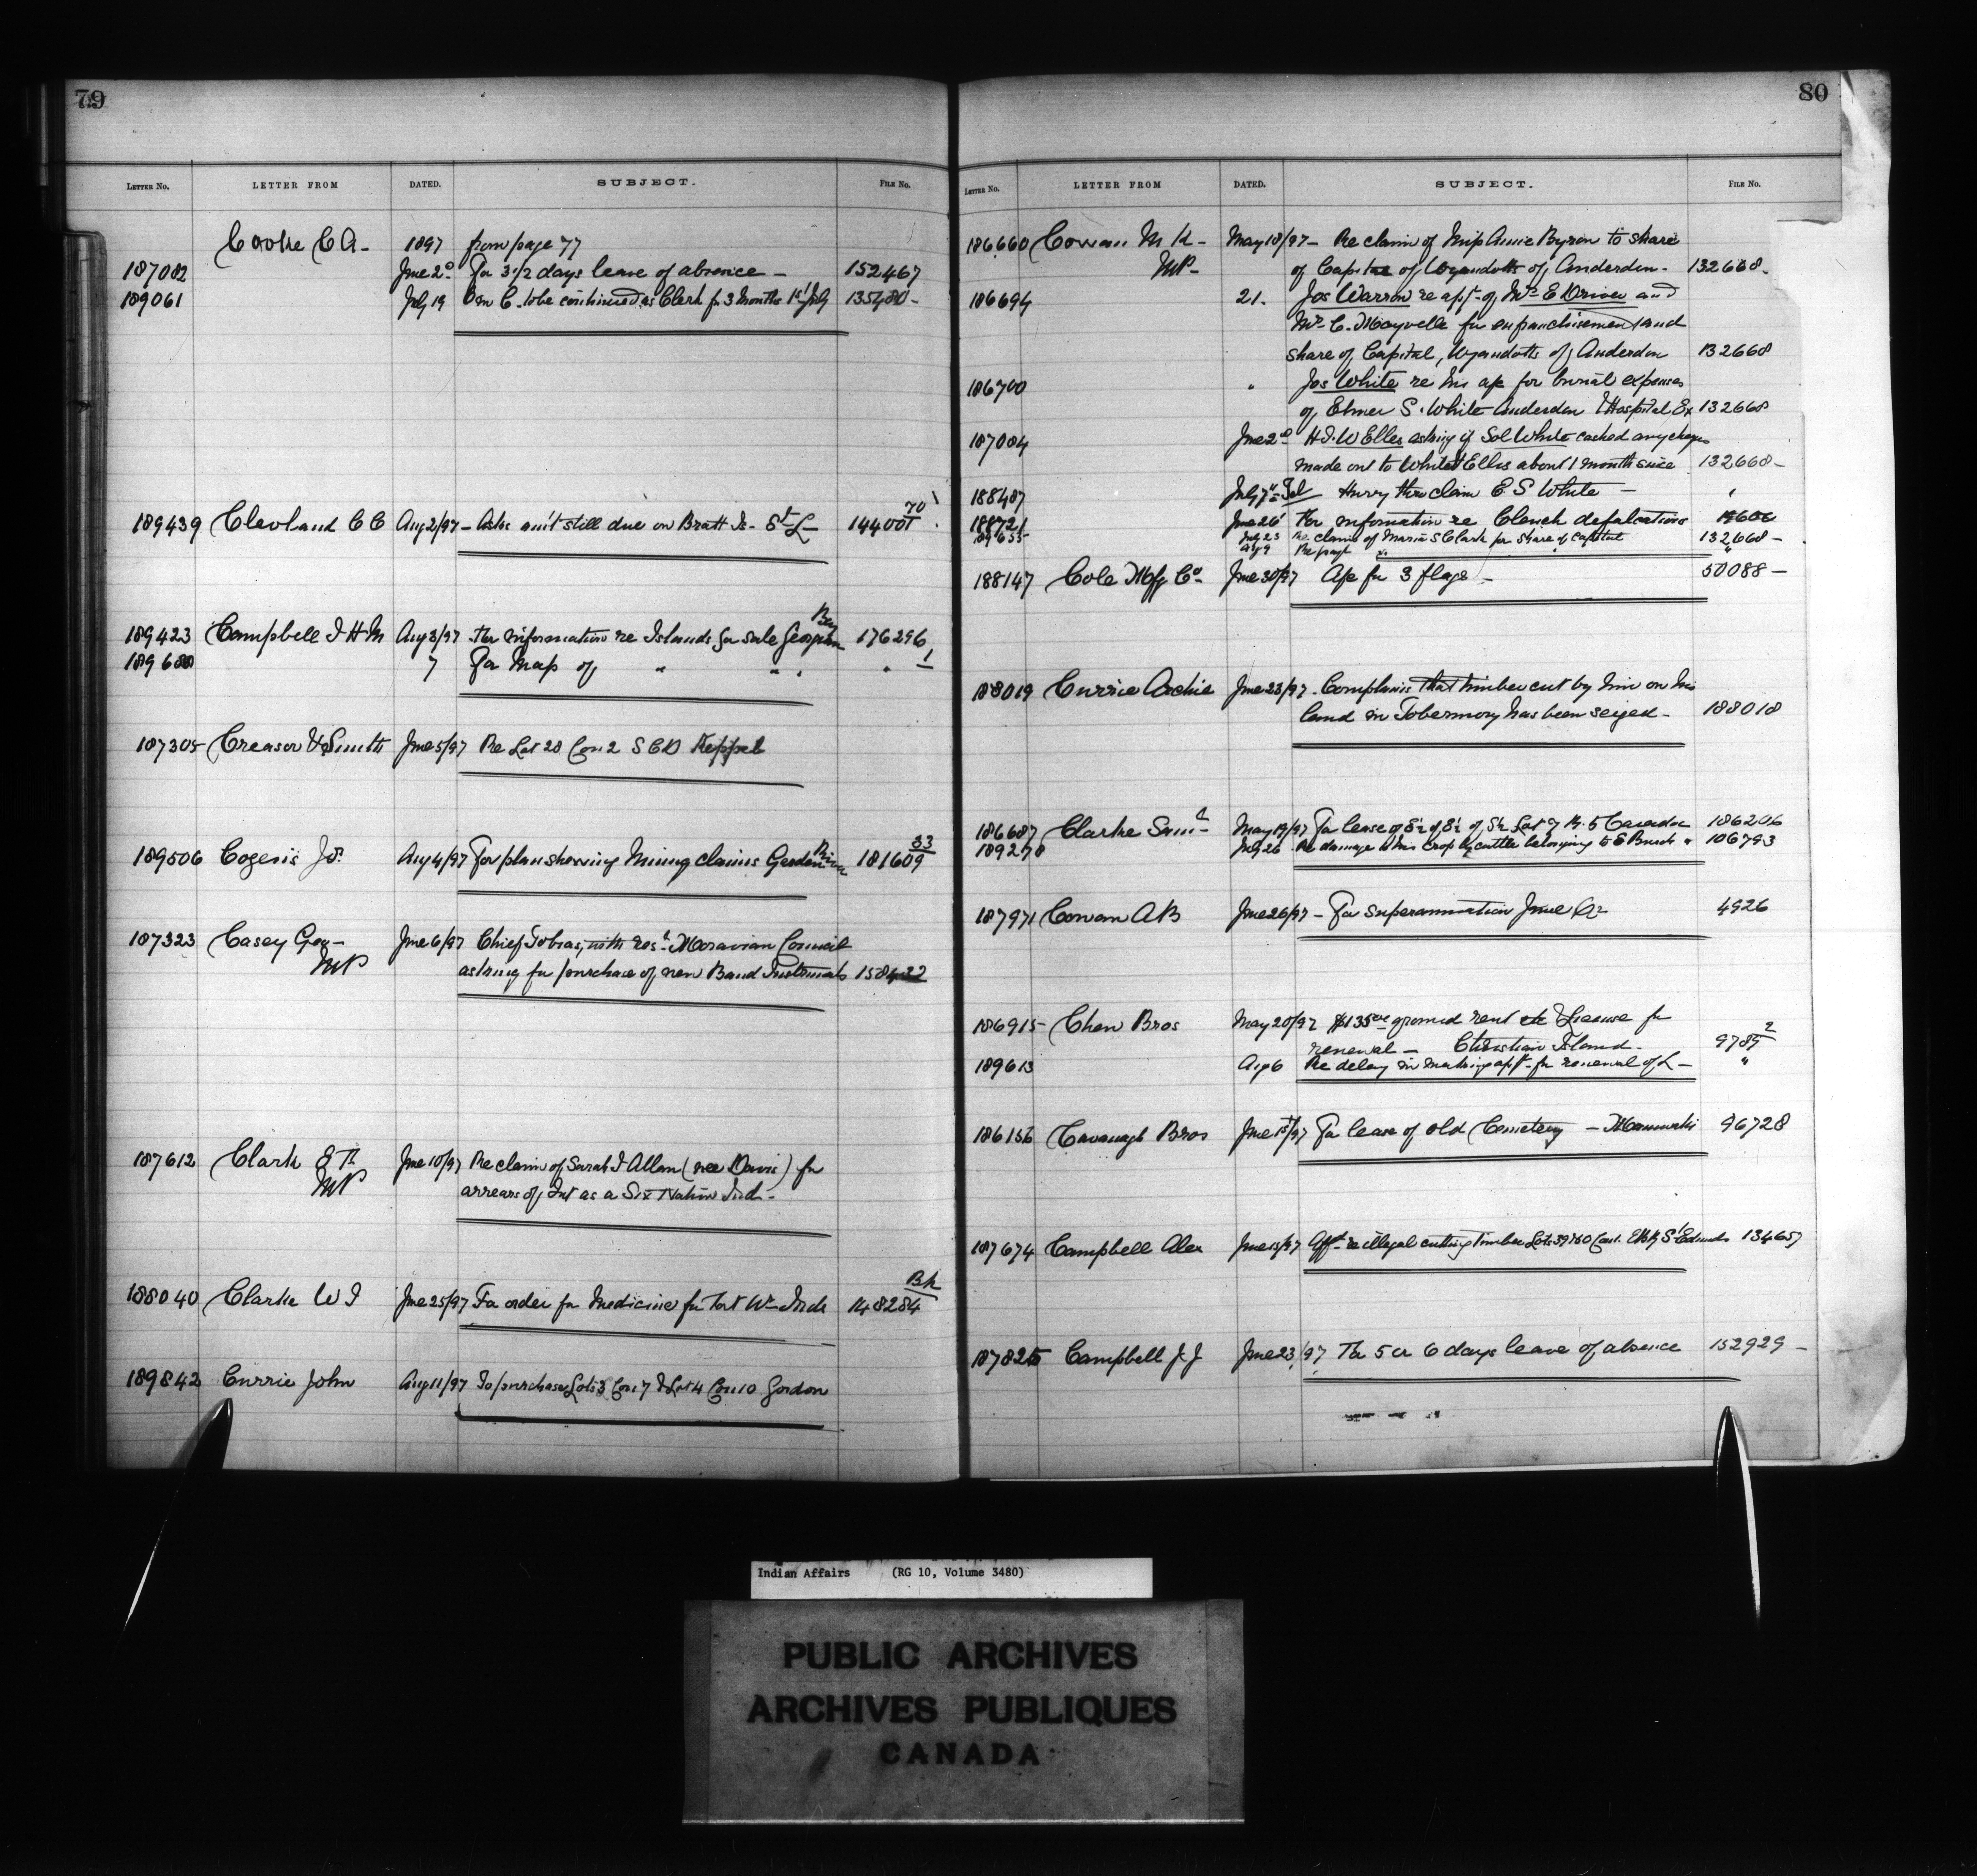 79
LETTER NO. LETTER FROM DATED. SUBJECT. FILE No.
Cooke C A - 1897 from page 77
187082 June 2d For 3 1/2 days leave of absence - 152467
189061 July 19 C. to be continued as Clerk for 3 Months 1st July 135480 -
70
189439 Cleveland C C Aug 2/97 - Asks am't still due on Bratt Is - St L 144001
Bay
189423 Campbell I H M Aug 3/97 For information re Islands for sale Georgian 176296
7 For Map of " " " 1
187305 Creasor & Smith June 5/97 Re Lot 28 Con 2 S C D Keppel
33
189506 Cogeris Jos. Aug 4/97 For plan showing Mining claims Garden River 181609
187323 Casey Geo - June 6/97 Chief Tobias, with resn Moravian Council
MP asking for purchase of new Band Instruments 158422
187612 Clark June 10/97 Re claim of Sarah J Allan (nee Davis) for
MP arrears of Int as a Six Nation Ind -
Bk
188040 Clarke W J June 25/97 For order for Medicine for Fort Wm Inds 148284
189842 Currie John Aug 11/97 To purchase Lots 3 Con 7 & Lot 4 Con 10 Gordon
80
LETTER NO. LETTER FROM DATED. SUBJECT. FILE No.
186660 Cowan M K - May 18/97 - Re claim of Miss Annie Byron to share
MP - of Capital of Wyandotts of Anderdon - 132668 -
186694 21. Jos Warrow re appn of Mrs E Driver and
Mrs C. Mayvelle for enfranchisement and
share of Capital, Wyandotts of Anderdon 132668
186700 " Jos White re his ap for burial expenses
of Elmer S. White Anderdon & Hospital Ex 132668
187084 June 2d H.I.W Elles asking if Sol White cashed any cheqs
made out to White & Ellis about 1 month since 132668 -
188487 July 7th Tel Hurry thro claim E S White - "
188721 June 26 For information re Clench defalcations
July 23 Re claim of Maria S Clark for share of Capital 132668 -
Aug 9 Re "
188147 Cole Mfg Co - June 30/97 Ap for 3 flags - 50088 -
188019 Currie Archie June 23/97 - Complains that timber cut by him on his
land in Tobermory has been seized - 188018
186687 Clarke Saml - May 19/97 For lease of E½ of E½ of S½ Lot 7 R. 5 Caradoc 186206
189278 July 26 Re damage to his crop by cattle belonging to E Burch 106793
187971 Cowan A B June 26/97 - For superannuation 4926
186915 Chew Bros May 20/97 $135 00 ground rent & License for
renewal - Christian Island - 9785 2
189613 Aug 6 Re delay in making appn for renewal of L - "
186156 Cavanagh Bros June 15/97 For lease of old Cemetery - Maniwaki 96728
187674 Campbell Alex June 15/97 Afft re illegal cutting timber Lots 39 & 40 St Edmunds 134657
187825 Campbell J J June 23/97 For 5 or 6 days leave of absence 152929 -
Indian Affairs (RG 10, Volume 3480)
PUBLIC ARCHIVES
ARCHIVES PUBLIQUES
CANADA